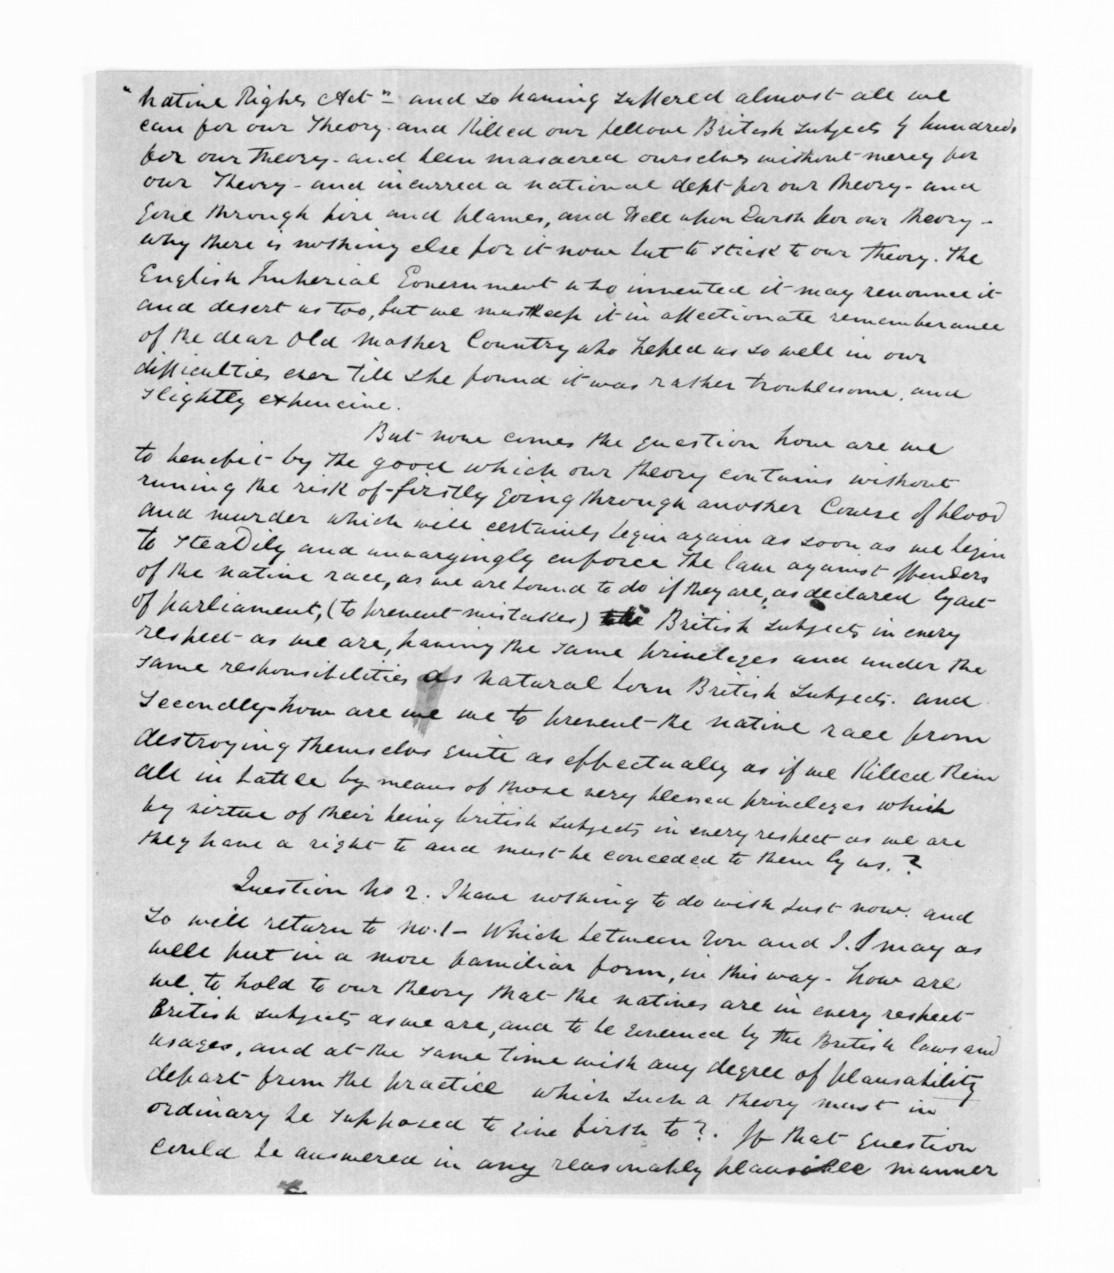 "Native Rights Act" and so having suffered almost all we
can for our Theory. and Killed our fellow British subjects by hundreds
for our Theory - and been masacred ourselves without mercy for
our Theory - and incurred a national dept for our Theory - and
gone through fire and flames, and Hell upon Earth for our Theory -
why there is nothing else for it now but to stick to our Theory. The
English Imperial Government who invented it may renounce it
and desert us too, but we must keep it in affectionate rememberance
of the dear old Mother Country who helped us so well in our
difficulties ever till she found it was rather troublesome, and
slightly expencive.
But now comes the question how are we
to benefit by the good which our theory contains without
runing the risk of - firstly going through another Course of blood
and murder which will certainly begin again as soon as we begin
to steadily and unvaryingly enforce the law against offenders
of the native race, as we are bound to do if they are, as declared by act
of parliament, (to prevent mistakes) British subjects in every
respect as we are, having the same priveleges and under the
same responsibilities as natural born British Subjects. and
Secondly how are we we to prevent the native race from
destroying themselves quite as effectually as if we Killed them
all in battle by means of those very blessed priveleges which
by virtue of their being british subjects in every respect as we are
they have a right to and must be conceded to them by us. ?
Question No 2. I have nothing to do with just now. and
so will return to No. 1 - Which between You and I. I may as
well put in a more familiar form, in this way - how are
we to hold to our theory that the natives are in every respect
British subjects as we are, and to be governed by the British laws and
usages, and at the same time with any degree of plausability
depart from the practice which such a theory must in
ordinary be supposed to give birth to ?. If that question
could be answered in any reasonably plausible manner